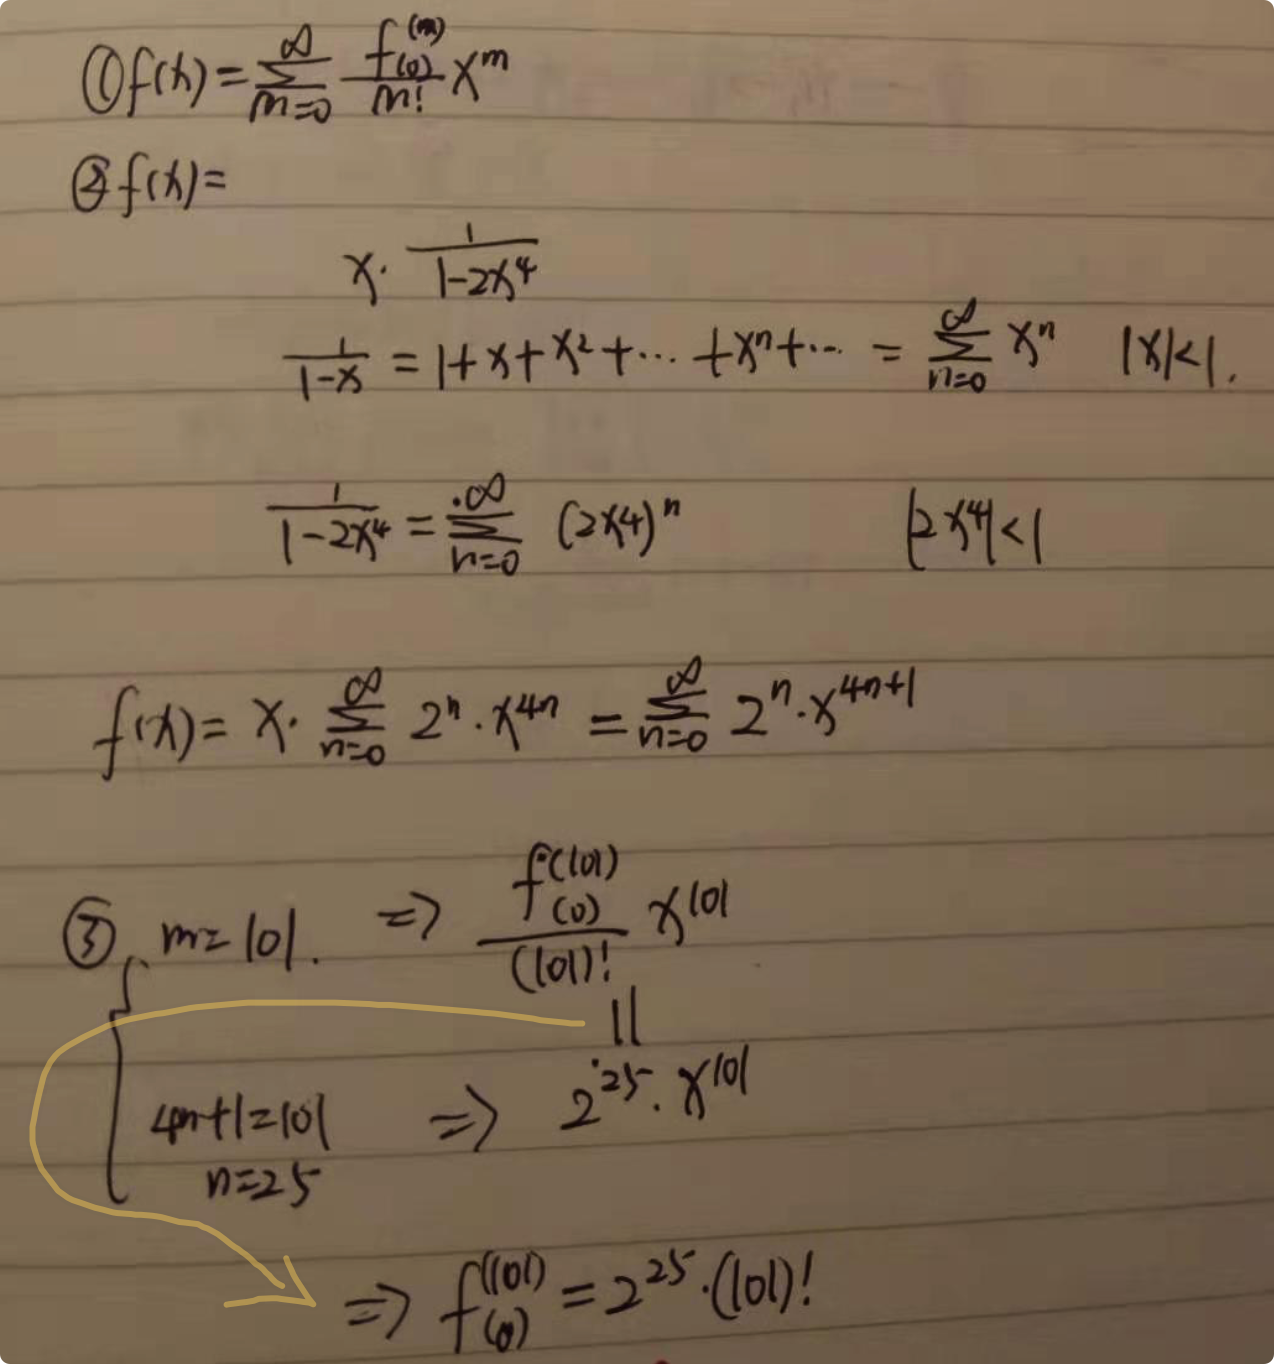 ① f(x) = ∑_{m=0}^{∞} \frac{f^{(m)}(0)}{m!} x^m
② f(x) =
x · \frac{1}{1-2x^4}
\frac{1}{1-x} = 1 + x + x^2 + ··· + x^n + ··· = ∑_{n=0}^{∞} x^n |x| < 1.
\frac{1}{1-2x^4} = ∑_{n=0}^{∞} (2x4)^n |2x^4| < 1
f(x) = x · ∑_{n=0}^{∞} 2^n · x^{4n} = ∑_{n=0}^{∞} 2^n · x^{4n+1}
③ m = 101. ⇒ \frac{f^{(101)}(0)}{(101)!} x^{101}
||
4n+1 = 101 ⇒ 2^{25} · x^{101}
n = 25
⇒ f^{(101)}(0) = 2^{25} · (101)!